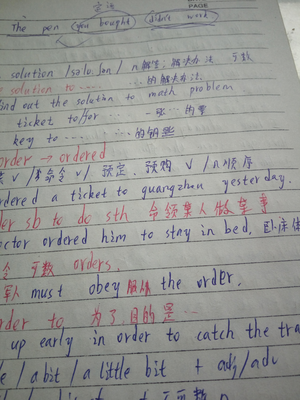 主语
PAGE
The pen (you bought) (didn't work
solution /səlu:ʃən/ n 解答, 解决办法 可数
solution to······ ······的解决办法.
find out the solution to math problem
ticket to/for ······ 一张···的票
key to······ ······的钥匙
order → ordered
v /命令 v/ 预定, 预购 v /n 顺序
ordered a ticket to guangzhou yesterday.
der sb to do sth 命令某人做某事
octor ordered him to stay in bed. 卧床休
令 可数 orders.
军人 must obey 服从 the order.
der to 为了目的是···
up early in order to catch the tra
/ a bit / a little bit + adj/adv